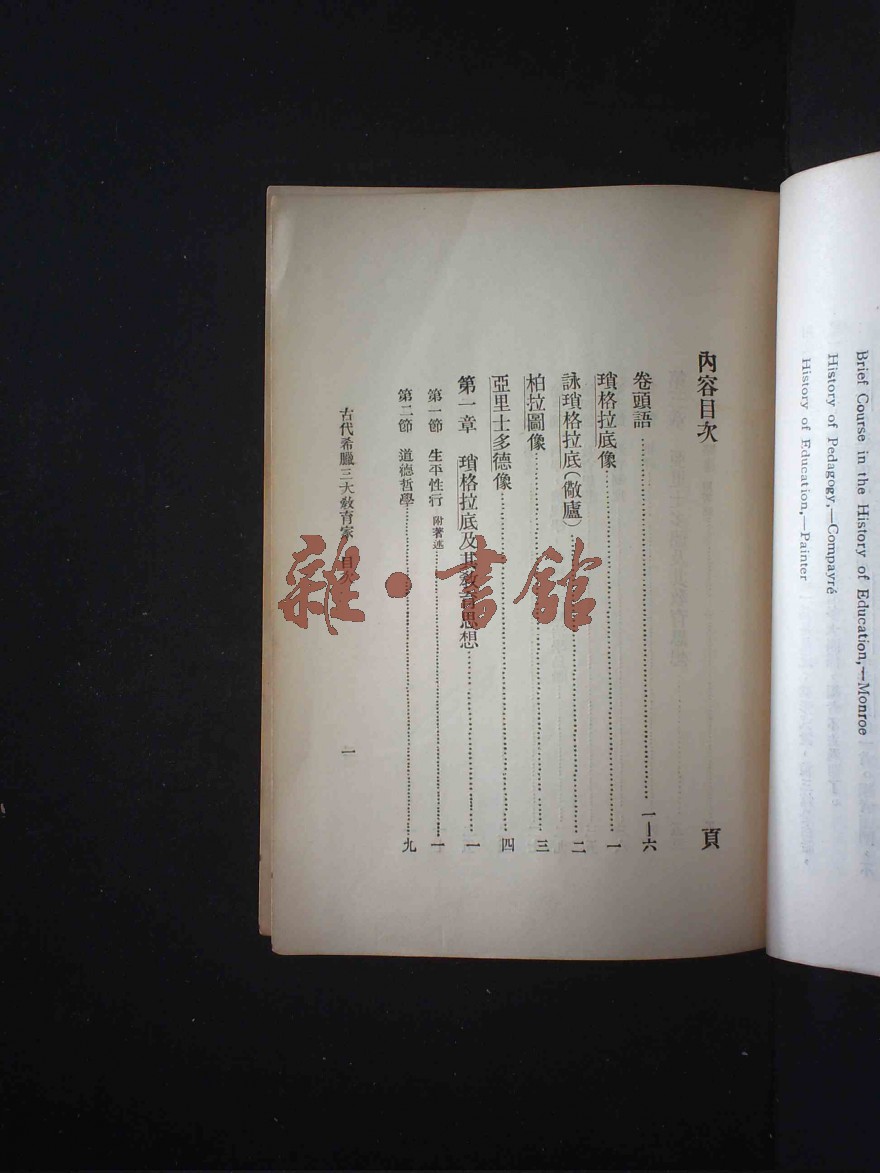 Brief Course in the History of Education,—Monroe
History of Pedagogy,—Compayré
History of Education,—Painter
內容目次 頁
卷頭語 一—六
瑣格拉底像 一
詠瑣格拉底(儆廬) 二
柏拉圖像 三
亞里士多德像 四
第一章 瑣格拉底及其教育思想 一
第一節 生平性行 附著述 一
第二節 道德哲學 九
古代希臘三大教育家 目次 一
雜·書館